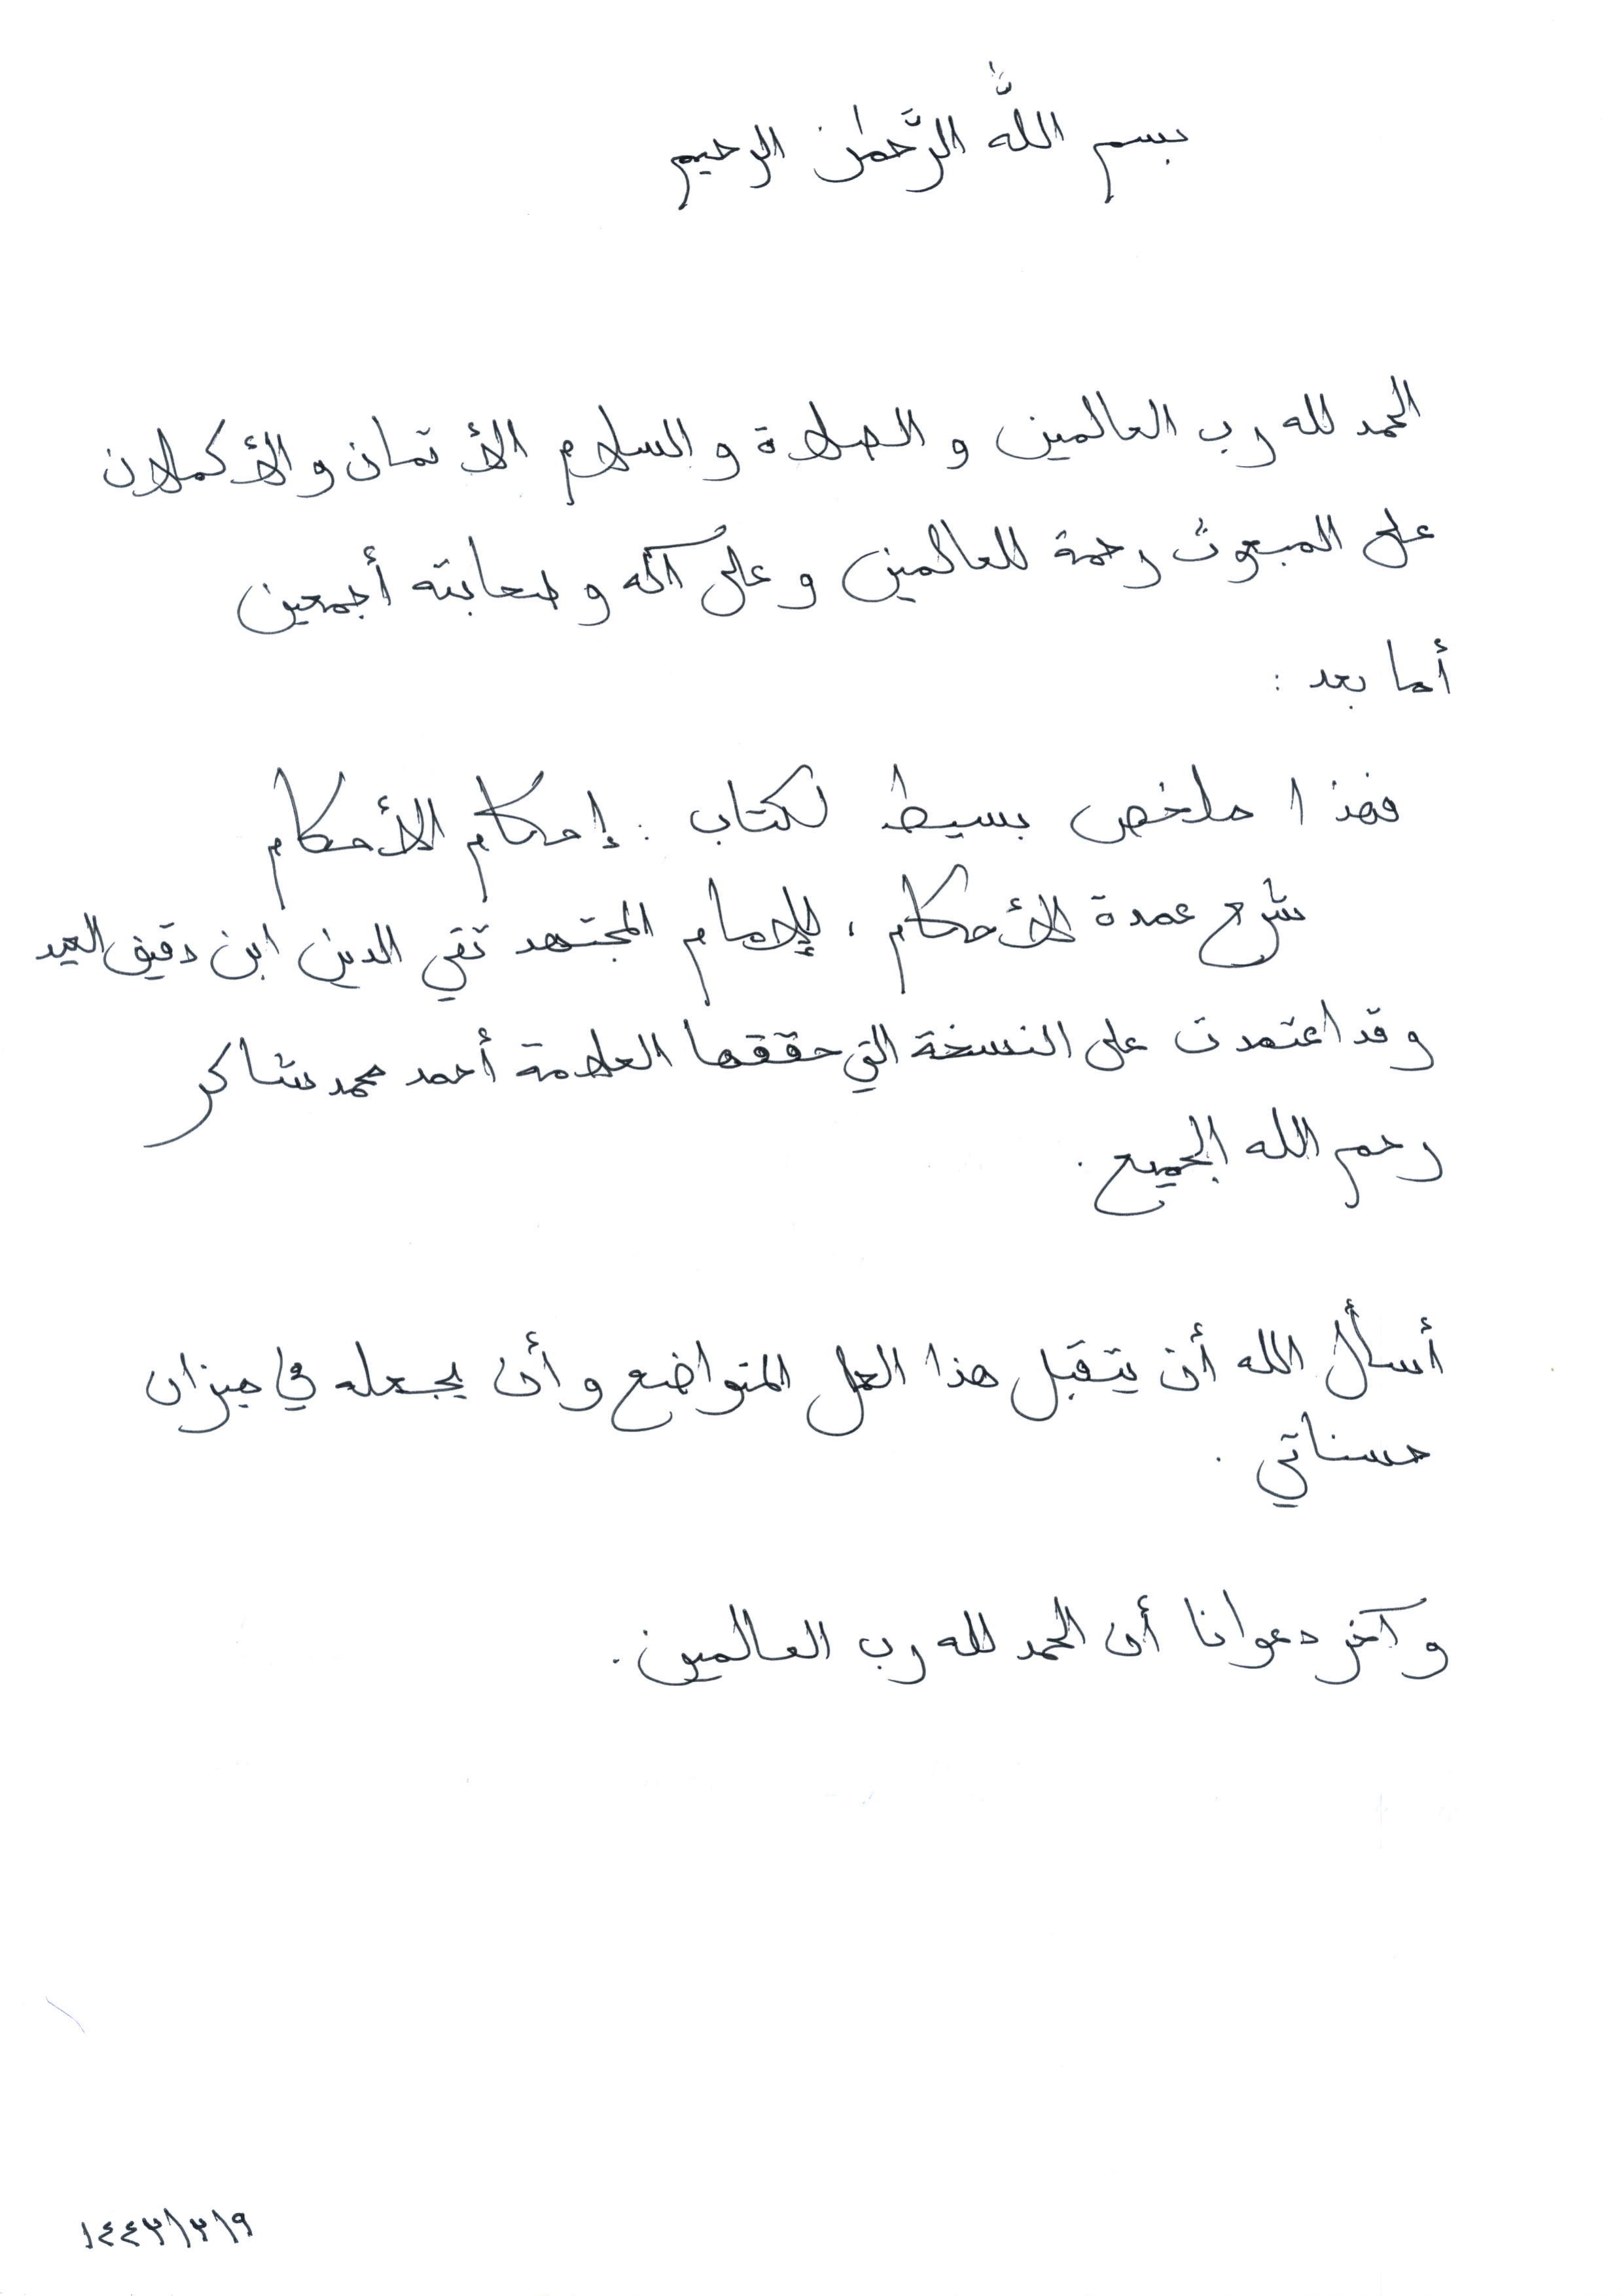 بسم اللَّه الرَّحمٰن الرحيم
الحمد لله رب العالمين و الصلاة و السلام الأتمان و الأكملان
على المبعوث رحمة للعالمين و على آله و صحابته أجمعين
أما بعد :
فهذا ملخص بسيط لكتاب : إحكام الأحكام
شرح عمدة الأحكام ، للإمام المجتهد تقي الدين ابن دقيق العيد
و قد اعتمدت على النسخة التي حققها العلامة أحمد محمد شاكر
رحم الله الجميع .
أسأل الله أن يتقبل هذا العمل المتواضع و أن يجعله في ميزان
حسناتي .
و آخر دعوانا أن الحمد لله رب العالمين .